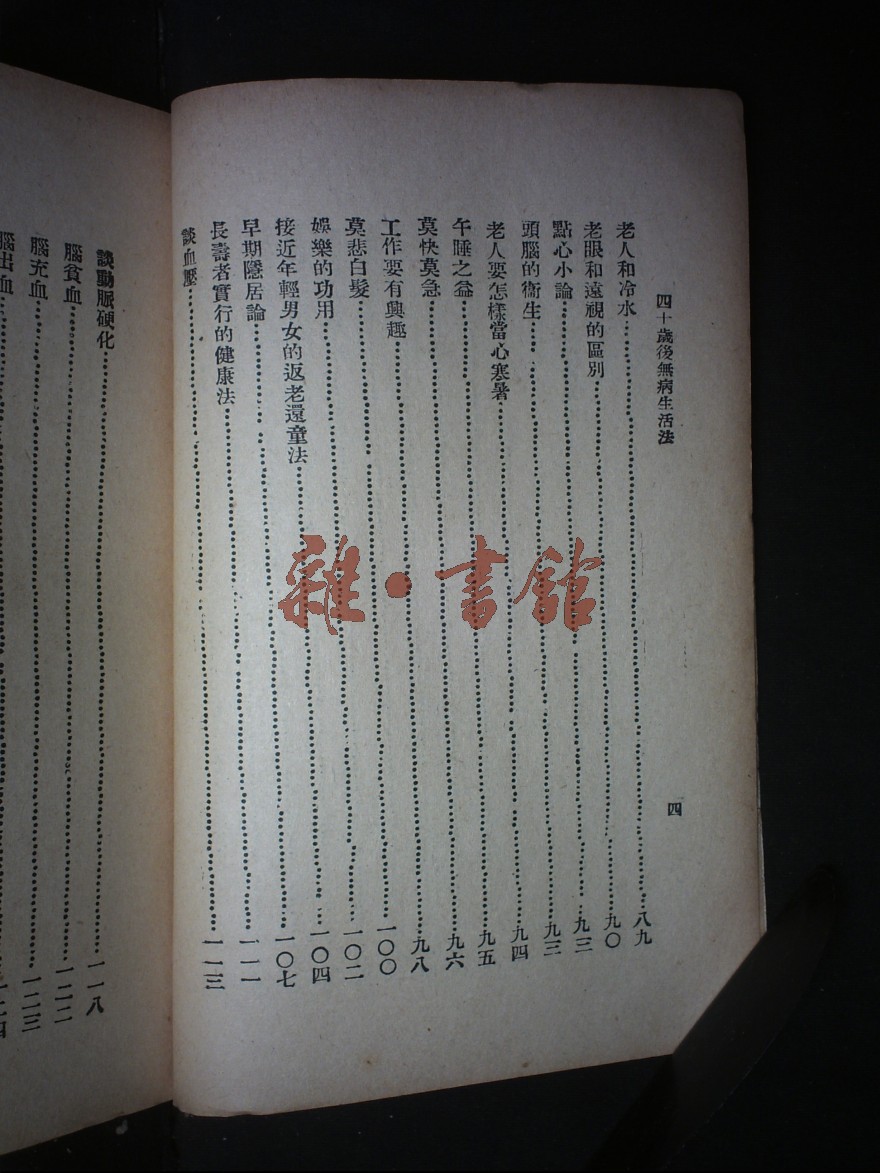 四十歲後無病生活法 四
老人和冷水……八九
老眼和遠視的區別……九〇
點心小論……九三
頭腦的衞生……九三
老人要怎樣當心寒暑……九四
午睡之益……九五
莫快莫急……九六
工作要有興趣……九八
莫悲白髮……一〇〇
娛樂的功用……一〇二
接近年輕男女的返老還童法……一〇四
早期隱居論……一〇七
長壽者實行的健康法……一一一
談血壓……一一三
談動脈硬化……一一八
腦貧血……一二二
腦充血……一二三
腦出血……一二四
雜·書館